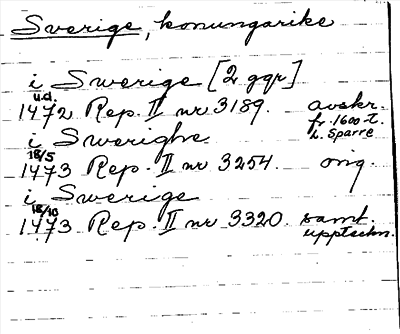 Sverige, konungarike
i Swerige [2 ggr]
u.d.
1472 Rep. II nr 3189. avskr.
fr. 1600-t.
L. Sparre
i Swerighe
18/5
1473 Rep. II nr 3254. orig.
i Swerige
18/10
1473 Rep. II nr 3320. samt.
upptechn.